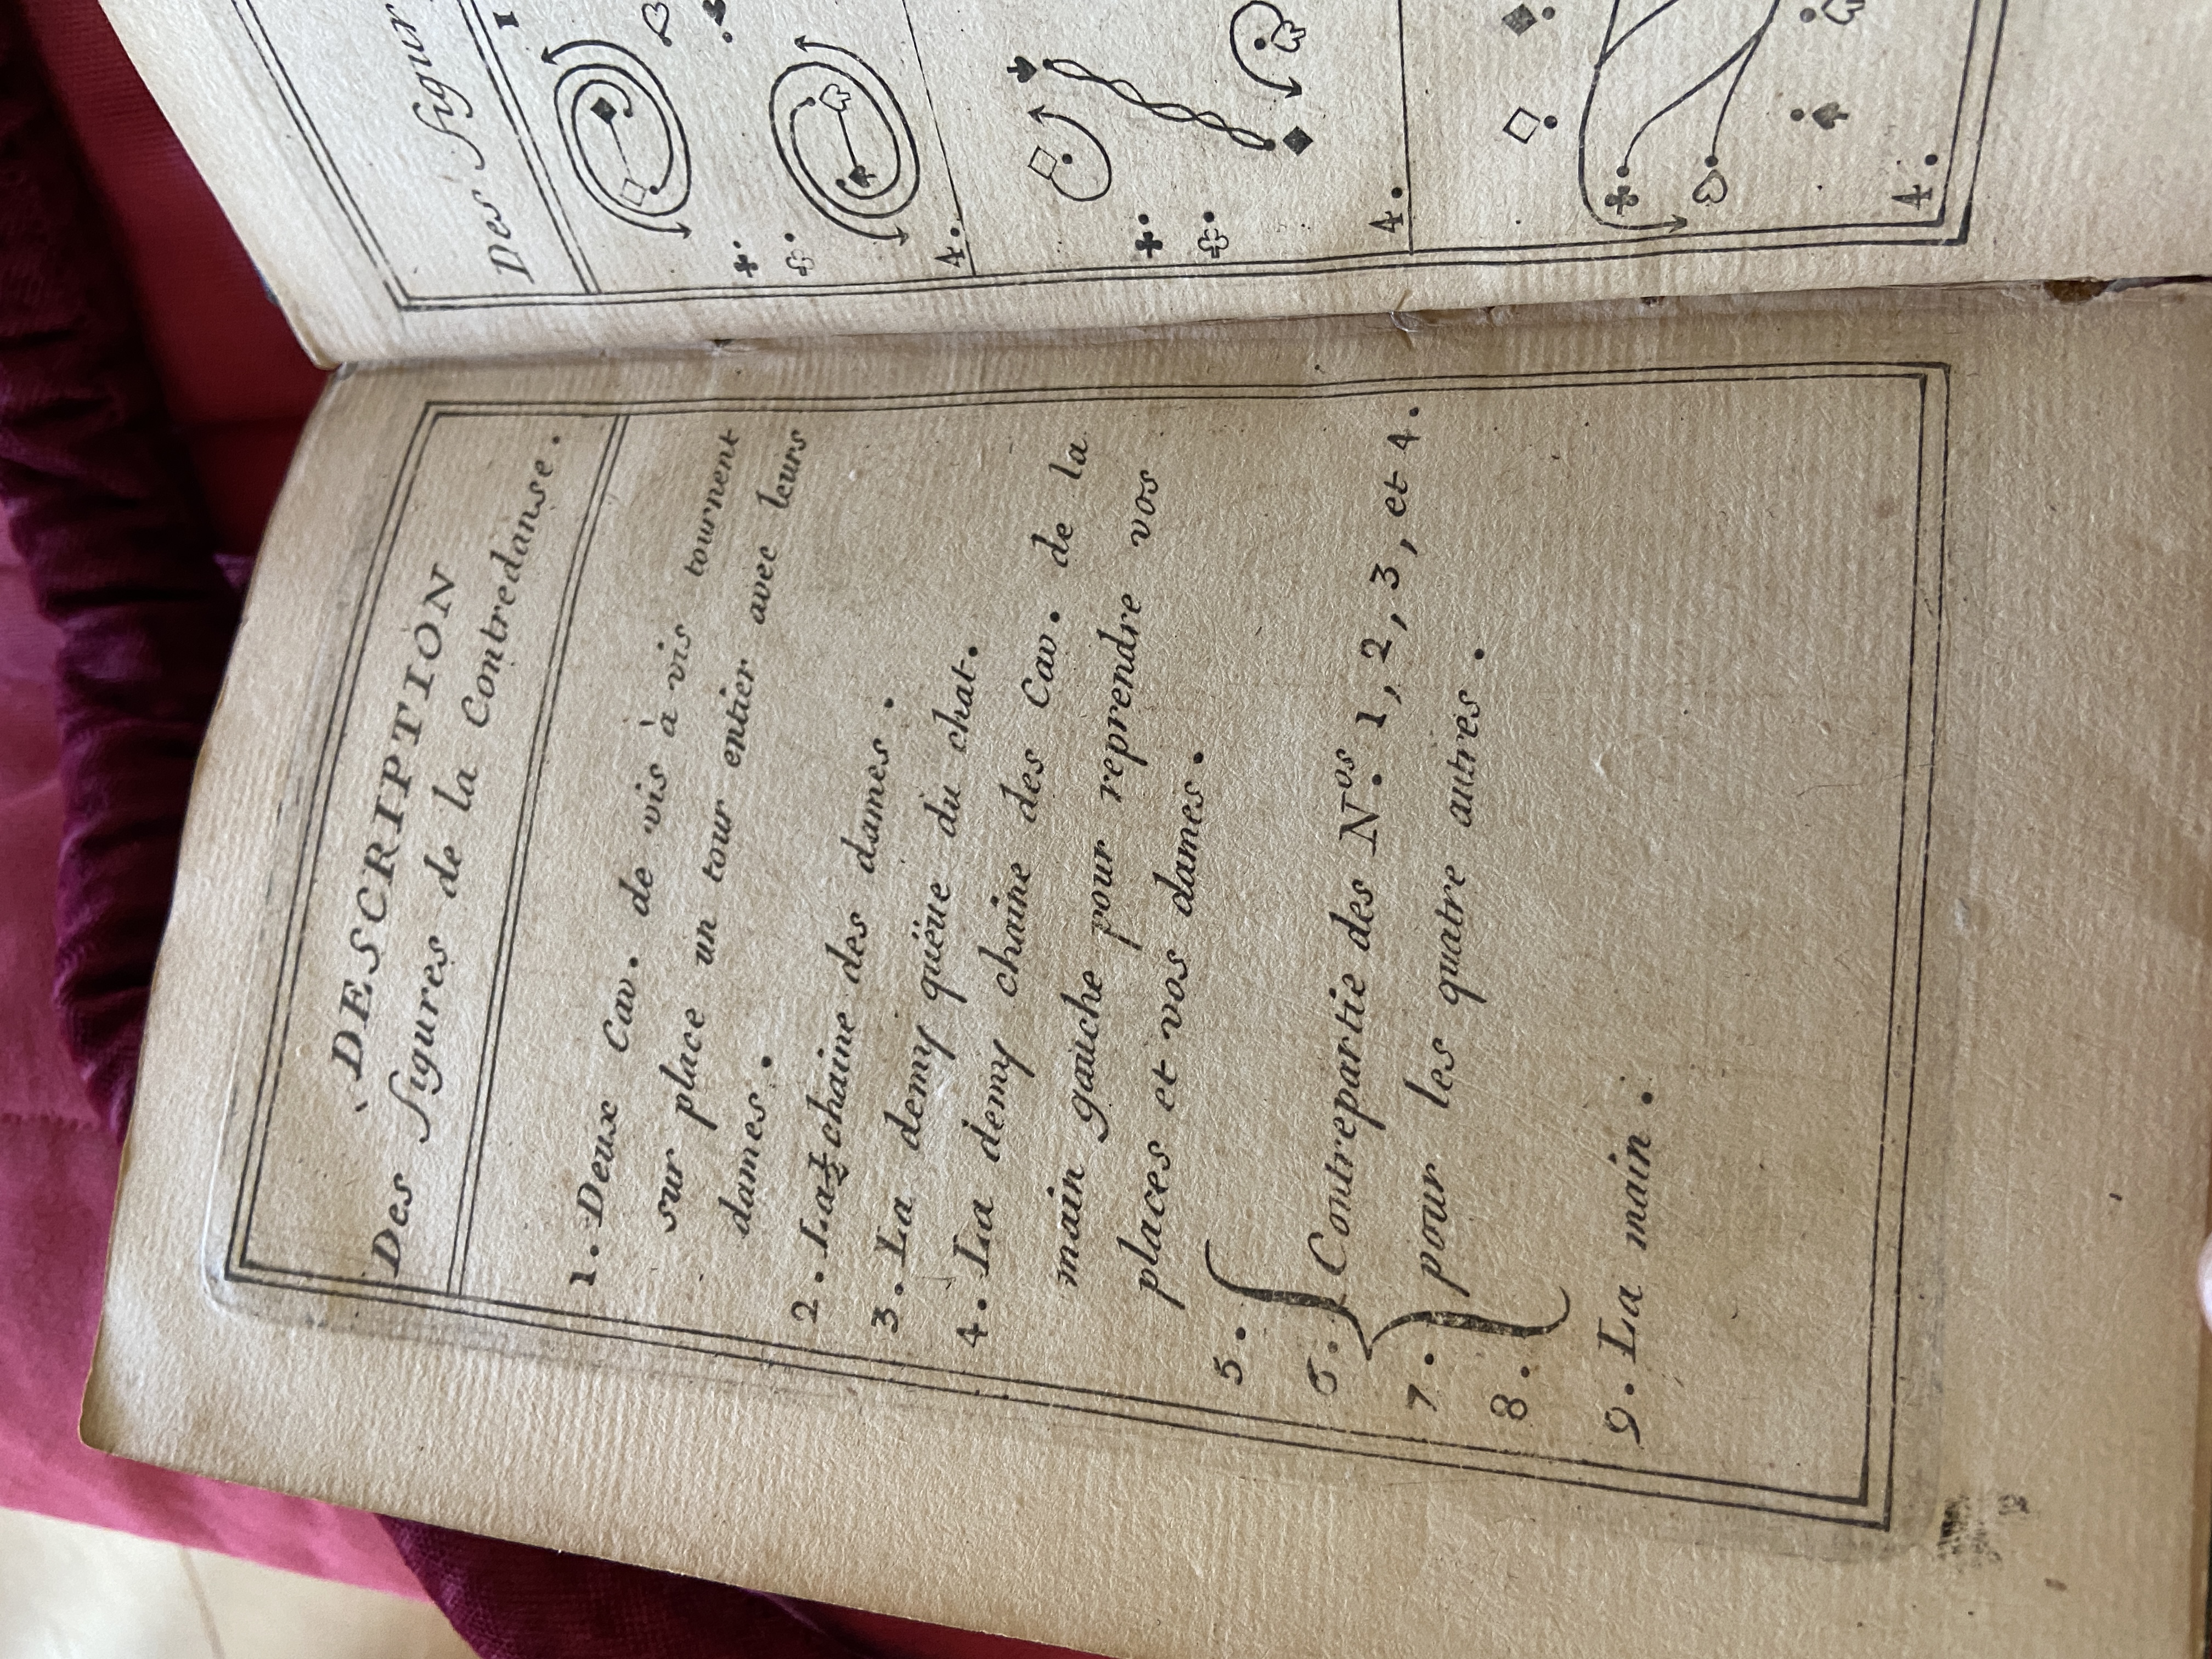 DESCRIPTION
Des figures de la Contredanse.
1. Deux Cav. de vis à vis tournent
sur place un tour entier avec leurs
dames.
2. La ½ chaine des dames.
3. La demy quëue du chat.
4. La demy chaine des Cav. de la
main gauche pour reprendre vos
places et vos dames.
5.
6. Contrepartie des Nos. 1, 2, 3, et 4.
7. pour les quatre autres.
8.
9. La main.
Des figur
1
4.
4.
4.